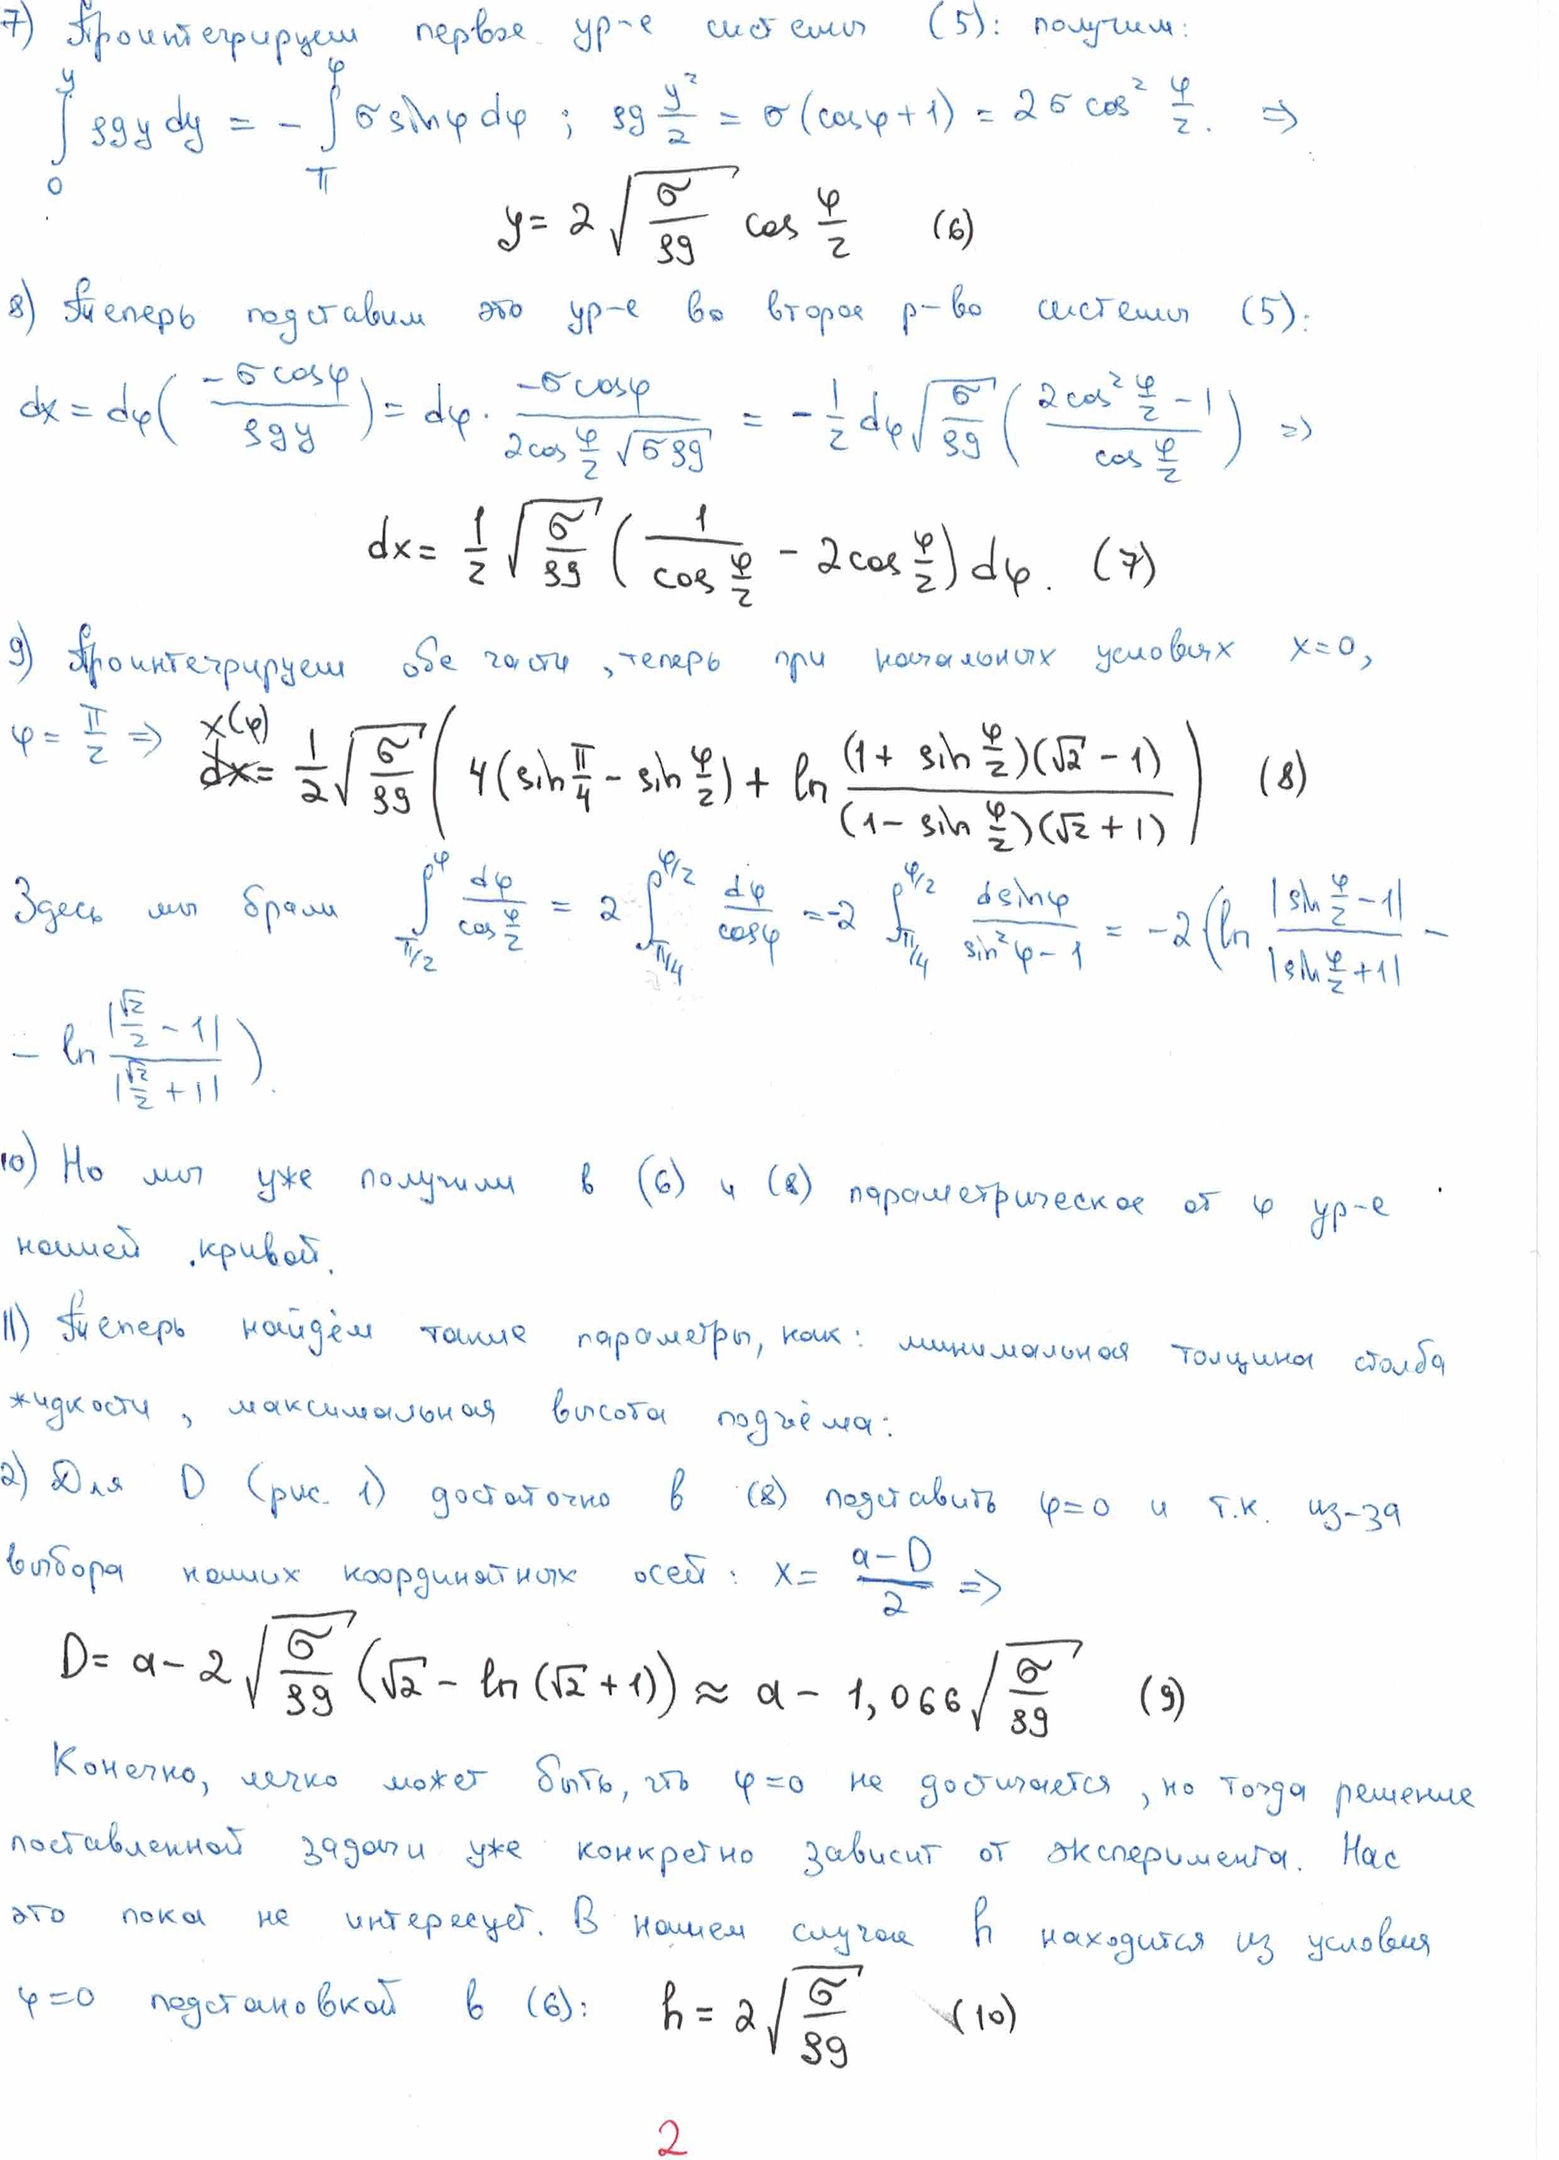 7) Проинтегрируем первое ур-е системы (5): получим:
∫₀^y ρgy dy = - ∫_π^φ σ sinφ dφ ; ρg y²/2 = σ(cosφ+1) = 2σ cos² φ/2. ⇒
y = 2 √(σ/ρg) cos φ/2 (6)
8) Теперь подставим это ур-е во второе р-во системы (5):
dx = dφ( -σ cosφ / ρgy ) = dφ · -σ cosφ / (2cos φ/2 √(σρg)) = - 1/2 dφ √(σ/ρg) ( (2cos² φ/2 - 1) / cos φ/2 ) ⇒
dx = 1/2 √(σ/ρg) ( 1/(cos φ/2) - 2cos φ/2 ) dφ. (7)
9) Проинтегрируем обе части, теперь при начальных условиях x=0,
φ = π/2 ⇒ x(φ) = 1/2 √(σ/ρg) ( 4(sin π/4 - sin φ/2) + ln ((1 + sin φ/2)(√2 - 1)) / ((1 - sin φ/2)(√2 + 1)) ) (8)
Здесь мы брали ∫_{π/2}^φ dφ/(cos φ/2) = 2 ∫_{π/4}^{φ/2} dφ/cosφ = -2 ∫_{π/4}^{φ/2} dsinφ/(sin²φ - 1) = -2 ( ln |sin φ/2 - 1| / |sin φ/2 + 1| -
- ln |√2/2 - 1| / |√2/2 + 1| ).
10) Но мы уже получили в (6) и (8) параметрическое от φ ур-е
нашей кривой.
11) Теперь найдём такие параметры, как: минимальная толщина столба
жидкости, максимальная высота подъёма:
2) Для D (рис. 1) достаточно в (8) подставить φ=0 и т.к. из-за
выбора наших координатных осей: x = (a-D)/2 ⇒
D = a - 2 √(σ/ρg) (√2 - ln(√2 + 1)) ≈ a - 1,066 √(σ/ρg) (9)
Конечно, легко может быть, что φ=0 не достигается, но тогда решение
поставленной задачи уже конкретно зависит от эксперимента. Нас
это пока не интересует. В нашем случае h находится из условия
φ=0 подстановкой в (6): h = 2 √(σ/ρg) (10)
2